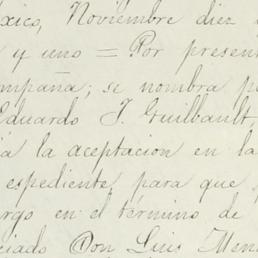 xico, Noviembre diez
y uno = Por present
ompañia; se nombra p
Eduardo J. Guilbault,
la aceptacion en la
espediente, para que
rgo en el término de
ciado Don Luis Men